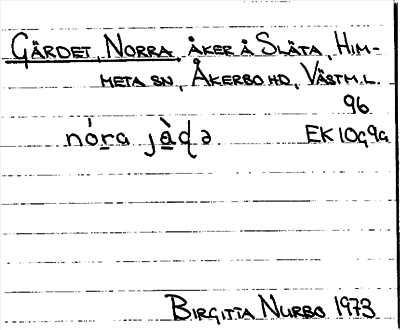 GÄRDET, NORRA, ÅKER Å SLÄTA, HIM-
META SN, ÅKERBO HD, VÄSTM.L.
96
nòra jàɖə EK 10g9a
BIRGITTA NURBO 1973